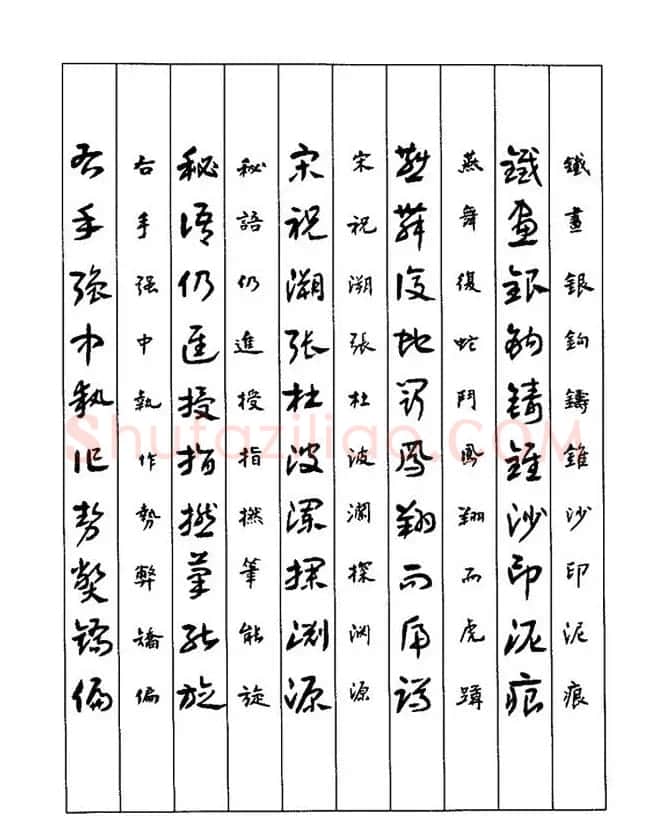 鐵畫銀鉤鑄錐沙印泥痕
鐵畫銀鉤鑄錐沙印泥痕
燕舞復蛇鬥鳳翔而虎蹲
燕舞復蛇鬥鳳翔而虎蹲
宋祝溯張杜波瀾探淵源
宋祝溯張杜波瀾探淵源
秘語仍進授指撚筆能旋
秘語仍進授指撚筆能旋
右手强中執作勢弊矯偏
右手强中執作勢弊矯偏
Shufaziliao.COM